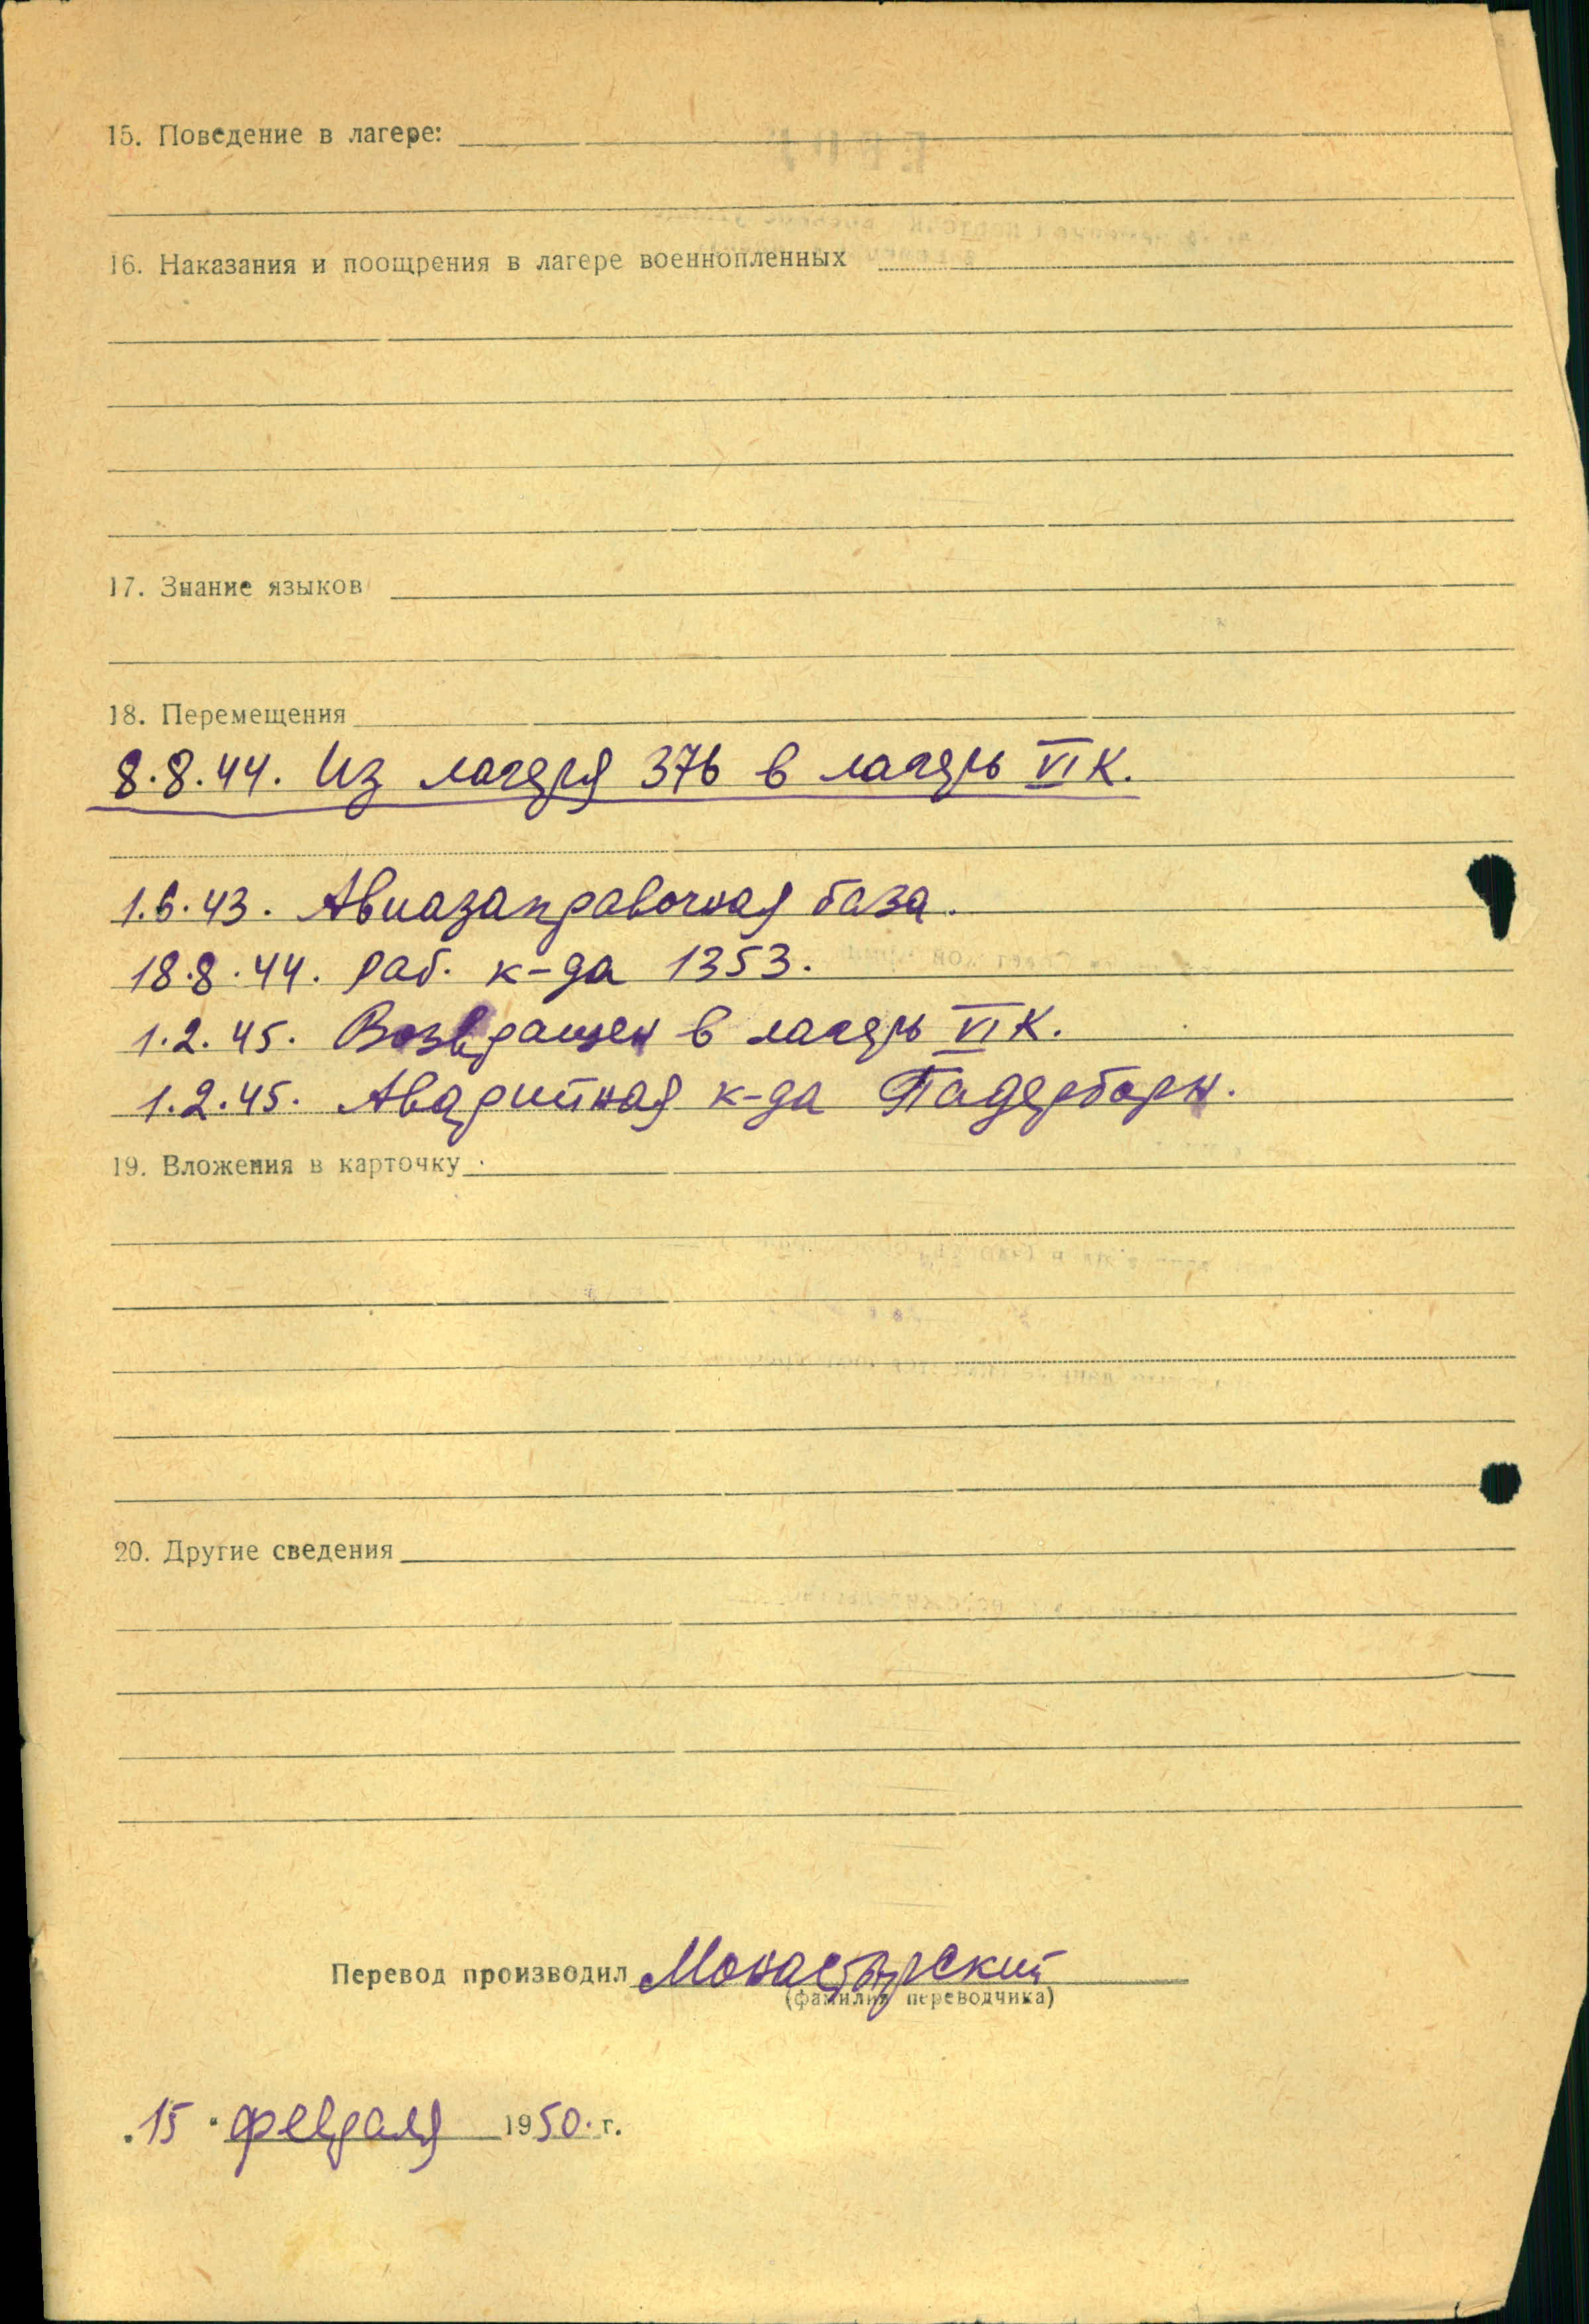 15. Поведение в лагере:
16. Наказания и поощрения в лагере военнопленных
17. Знание языков
18. Перемещения
8.8.44. Из лагеря 376 в лагерь VI К.
1.6.43. Авиазаправочная база.
18.8.44. раб. к-да 1353.
1.2.45. Возвращен в лагерь VI К.
1.2.45. Аварийная к-да Падерборн.
19. Вложения в карточку
20. Другие сведения
Перевод производил Монастырский
(фамилия переводчика)
„15" февраля 1950. г.